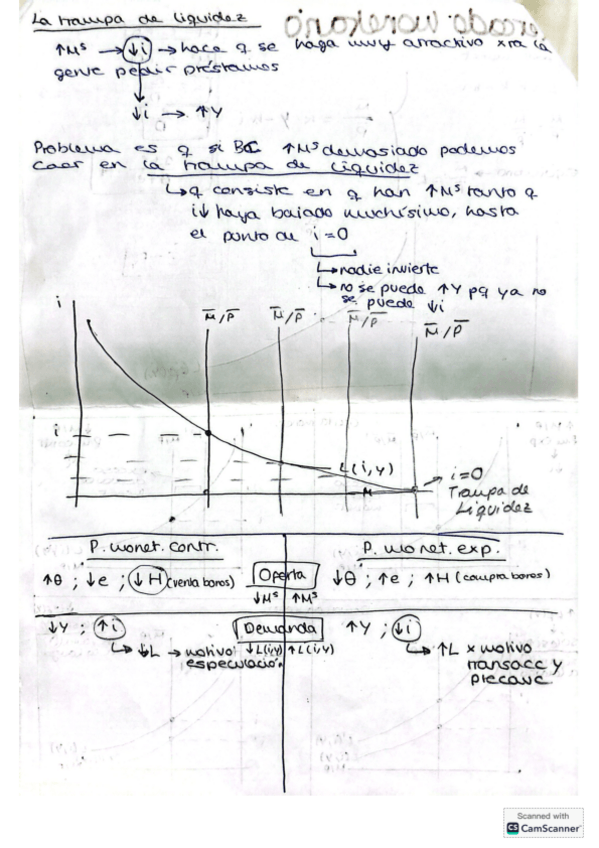 La trampa de liquidez
↑Mˢ → ↓i → hace q se haga muy atractivo xra la
gente pedir préstamos
↓i → ↑Y
Problema es q si BC ↑Mˢ demasiado podemos
caer en la trampa de liquidez
↳ q consiste en q han ↑Mˢ tanto q
i↓ haya bajado muchísimo, hasta
el punto de i=0
↳ nadie invierte
↳ no se puede ↑Y pq ya no
se puede ↓i
i
M̅/P̅ M̅/P̅ M̅/P̅ M̅/P̅
i
L(i,Y)
→ i=0
Trampa de
Liquidez
P. monet. contr. P. monet. exp.
↑θ ; ↓e ; ↓H (venta bonos) Oferta ↓θ ; ↑e ; ↑H (compra bonos)
↓Mˢ ↑Mˢ
↓Y ; ↑i Demanda ↑Y ; ↓i
↳ ↓L → motivo especulación ↓L(i,Y) ↑L(i,Y) ↳ ↑L x motivo
transacc y
precauc
Scanned with
CS CamScanner